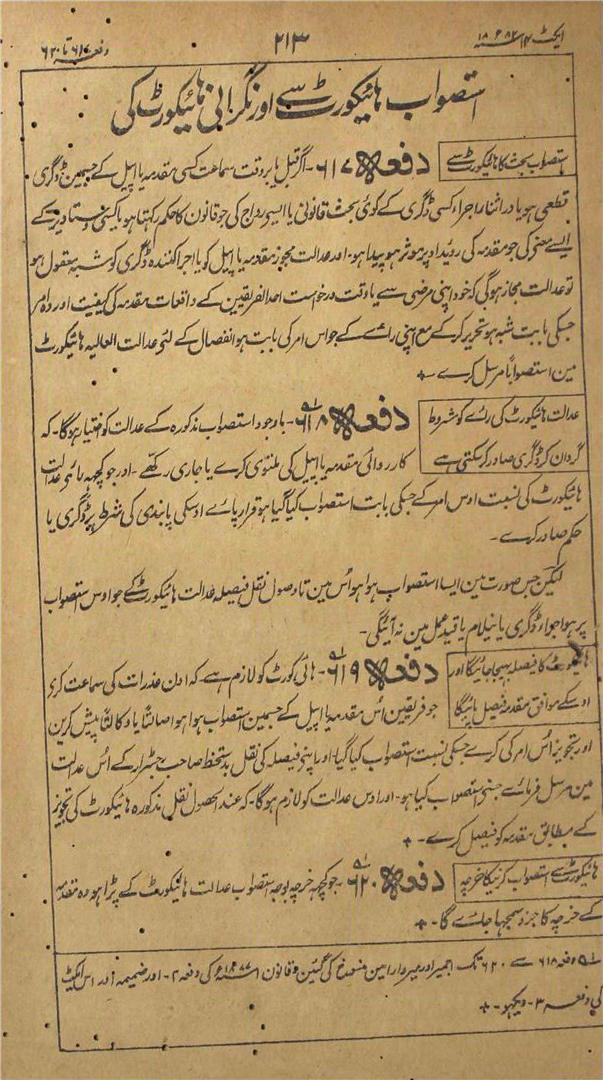 ایکٹ ۱۴ سنہ ۱۸۸۲ء
۲۱۳
دفعہ ۶۱۷ تا ۶۲۰
استصواب ہائیکورٹ سے اور نگرانی ہائیکورٹ کی
استصواب بحث کا ہائیکورٹ سے
دفعہ ۶۱۷ - اگر قبل یا بروقت سماعت کسی مقدمہ یا اپیل کے جسمین ڈگری
قطعی ہو یا در اثناء اجراء کسی ڈگری کے کوئی بحث قانونی یا ایسی رواج کی جو قانون کا حکم رکھتا ہو یا کسی دستاویز کے
ایسے معنی کی جو مقدمہ کی روئداد پر موثر ہو پیدا ہو - اور عدالت مجوز مقدمہ یا اپیل کو یا اجرا کنندہ ڈگری کو شبہ معقول ہو
تو عدالت مجاز ہوگی کہ خود اپنی مرضی سے یا وقت درخواست احد الفریقین کے واقعات مقدمہ کی کیفیت اور وہ امر
جسکی بابت شبہ ہو تحریر کر کے مع اپنی رائے کے جو اس امر کی بابت ہو انفصال کے لئے عدالت العالیہ ہائیکورٹ
مین استصواباً مرسل کرے +
عدالت ہائیکورٹ کی رائے کو مشروط
گردان کر ڈگری صادر کر سکتی ہے
دفعہ ۶۱۸ - باوجود استصواب مذکورہ کے عدالت کو اختیار ہوگا - کہ
کارروائی مقدمہ یا اپیل کی ملتوی کرے یا جاری رکھے - اور جو کچھہ رائے عدالت
ہائیکورٹ کی نسبت اوس امر کے جسکی بابت استصواب کیا گیا ہو قرار پائے اوسکی پابندی کی شرط پر ڈگری یا
حکم صادر کرے -
لیکن جس صورت مین ایسا استصواب ہوا ہو اُس مین تا وصول نقل فیصلہ عدالت ہائیکورٹ کے جو اوس استصواب
پر ہوا جراء ڈگری یا نیلام یا قید عمل مین نہ آئیگی -
ہائیکورٹ کا فیصلہ بھیجا جائیگا اور
اوسکے موافق مقدمہ فیصل پائیگا
دفعہ ۶۱۹ - ہائی کورٹ کو لازم ہے کہ اون عذرات کی سماعت کری
جو فریقین اُس مقدمہ یا اپیل کے جسمین استصواب ہوا ہو اصالتاً یا وکالتاً پیش کرین
اور تجویز اُس امر کی کرے جسکی نسبت استصواب کیا گیا اور اپنے فیصلہ کی نقل بدستخط صاحب رجسٹرار کے اُس عدالت
مین مرسل فرمائے جسنے استصواب کیا ہو - اور اوس عدالت کو لازم ہوگا - کہ عند الحصول نقل مذکورہ ہائیکورٹ کی تجویز
کے مطابق مقدمہ کو فیصل کرے - +
ہائیکورٹ سے استصواب کرنیکا خرچہ
دفعہ ۶۲۰ - جو کچھہ خرچہ بوجہ استصواب عدالت ہائیکورٹ کے پڑا ہو وہ مقدمہ
کے خرچہ کا جزو سمجہا جائے گا - +
دفعہ ۶۱۸ سے ۶۲۰ تک اجمیر اور میروارا مین منسوخ کی گئین و قانون ۱ سنہ ۱۸۷۷ء کی دفعہ ۲ - اور ضمیمہ اور اس ایکٹ
کی دفعہ ۳ - دیکھو - +